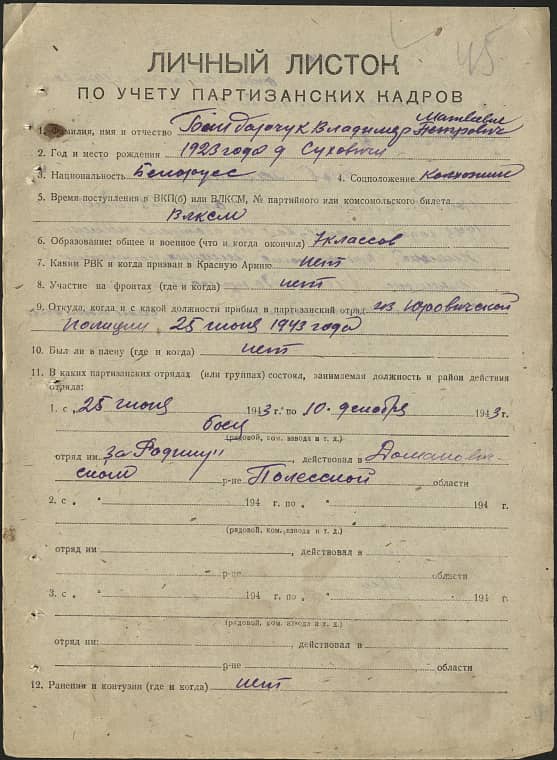 45
ЛИЧНЫЙ ЛИСТОК
ПО УЧЕТУ ПАРТИЗАНСКИХ КАДРОВ
Матвеевич
1. Фамилия, имя и отчество Владимир Петрович
2. Год и место рождения 1923 года д Суховичи
3. Национальность Белорусс 4. Соцположение
5. Время поступления в ВКП(б) или ВЛКСМ, № партийного или комсомольского билета
Влксм
6. Образование: общее и военное (что и когда окончил) 7 классов
7. Каким РВК и когда призван в Красную Армию нет
8. Участие на фронтах (где и когда) нет
9. Откуда, когда и с какой должности прибыл в партизанский отряд из Юровичской
полиции, 25 июня 1943 года
10. Был ли в плену (где и когда) нет
11. В каких партизанских отрядах (или группах) состоял, занимаемая должность и район действия
отряда:
1. с „ 25 июня 1943 г. по 10 декабря 1943 г.
боец
(рядовой, ком. взвода и т. д.)
отряд им „за Родину" , действовал в Доманович-
ском р-не Полесской области
2. с „ " 194 г. по „ " 194 г.
(рядовой, ком. взвода и т. д.)
отряд им , действовал в
р-не области
3. с „ " 194 г. по „ " 194 г.
(рядовой, ком. взвода и т. д.)
отряд им: , действовал в
р-не области
12. Ранения и контузии (где и когда) нет